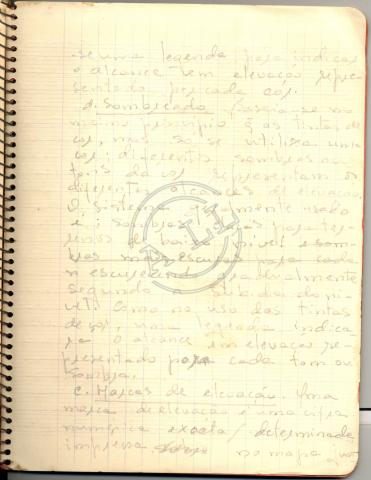 se uma legenda para indicar
o alcance em elevação repre
sentado por cada cor.
d. Sombreado. Baseia-se no
mesmo principio q as tintas de
cor, mas só se utiliza uma
cor; diferentes sombras ou
tons da cor representam os
diferentes alcances de elevação.
O sistema usado
é: sombras para ter-
renos de baixo nivel e som-
bras mais escuras para cada
gradualmente
segundo a subida do ni-
vel. Como no uso das tintas
de cor, uma legenda indica-
o alcance em elevação re-
presentado para cada tom ou
sombra.
e. Marcas de elevação. Uma
marca de elevação é uma cifra
numérica exacta/ determinada
impressa no mapa